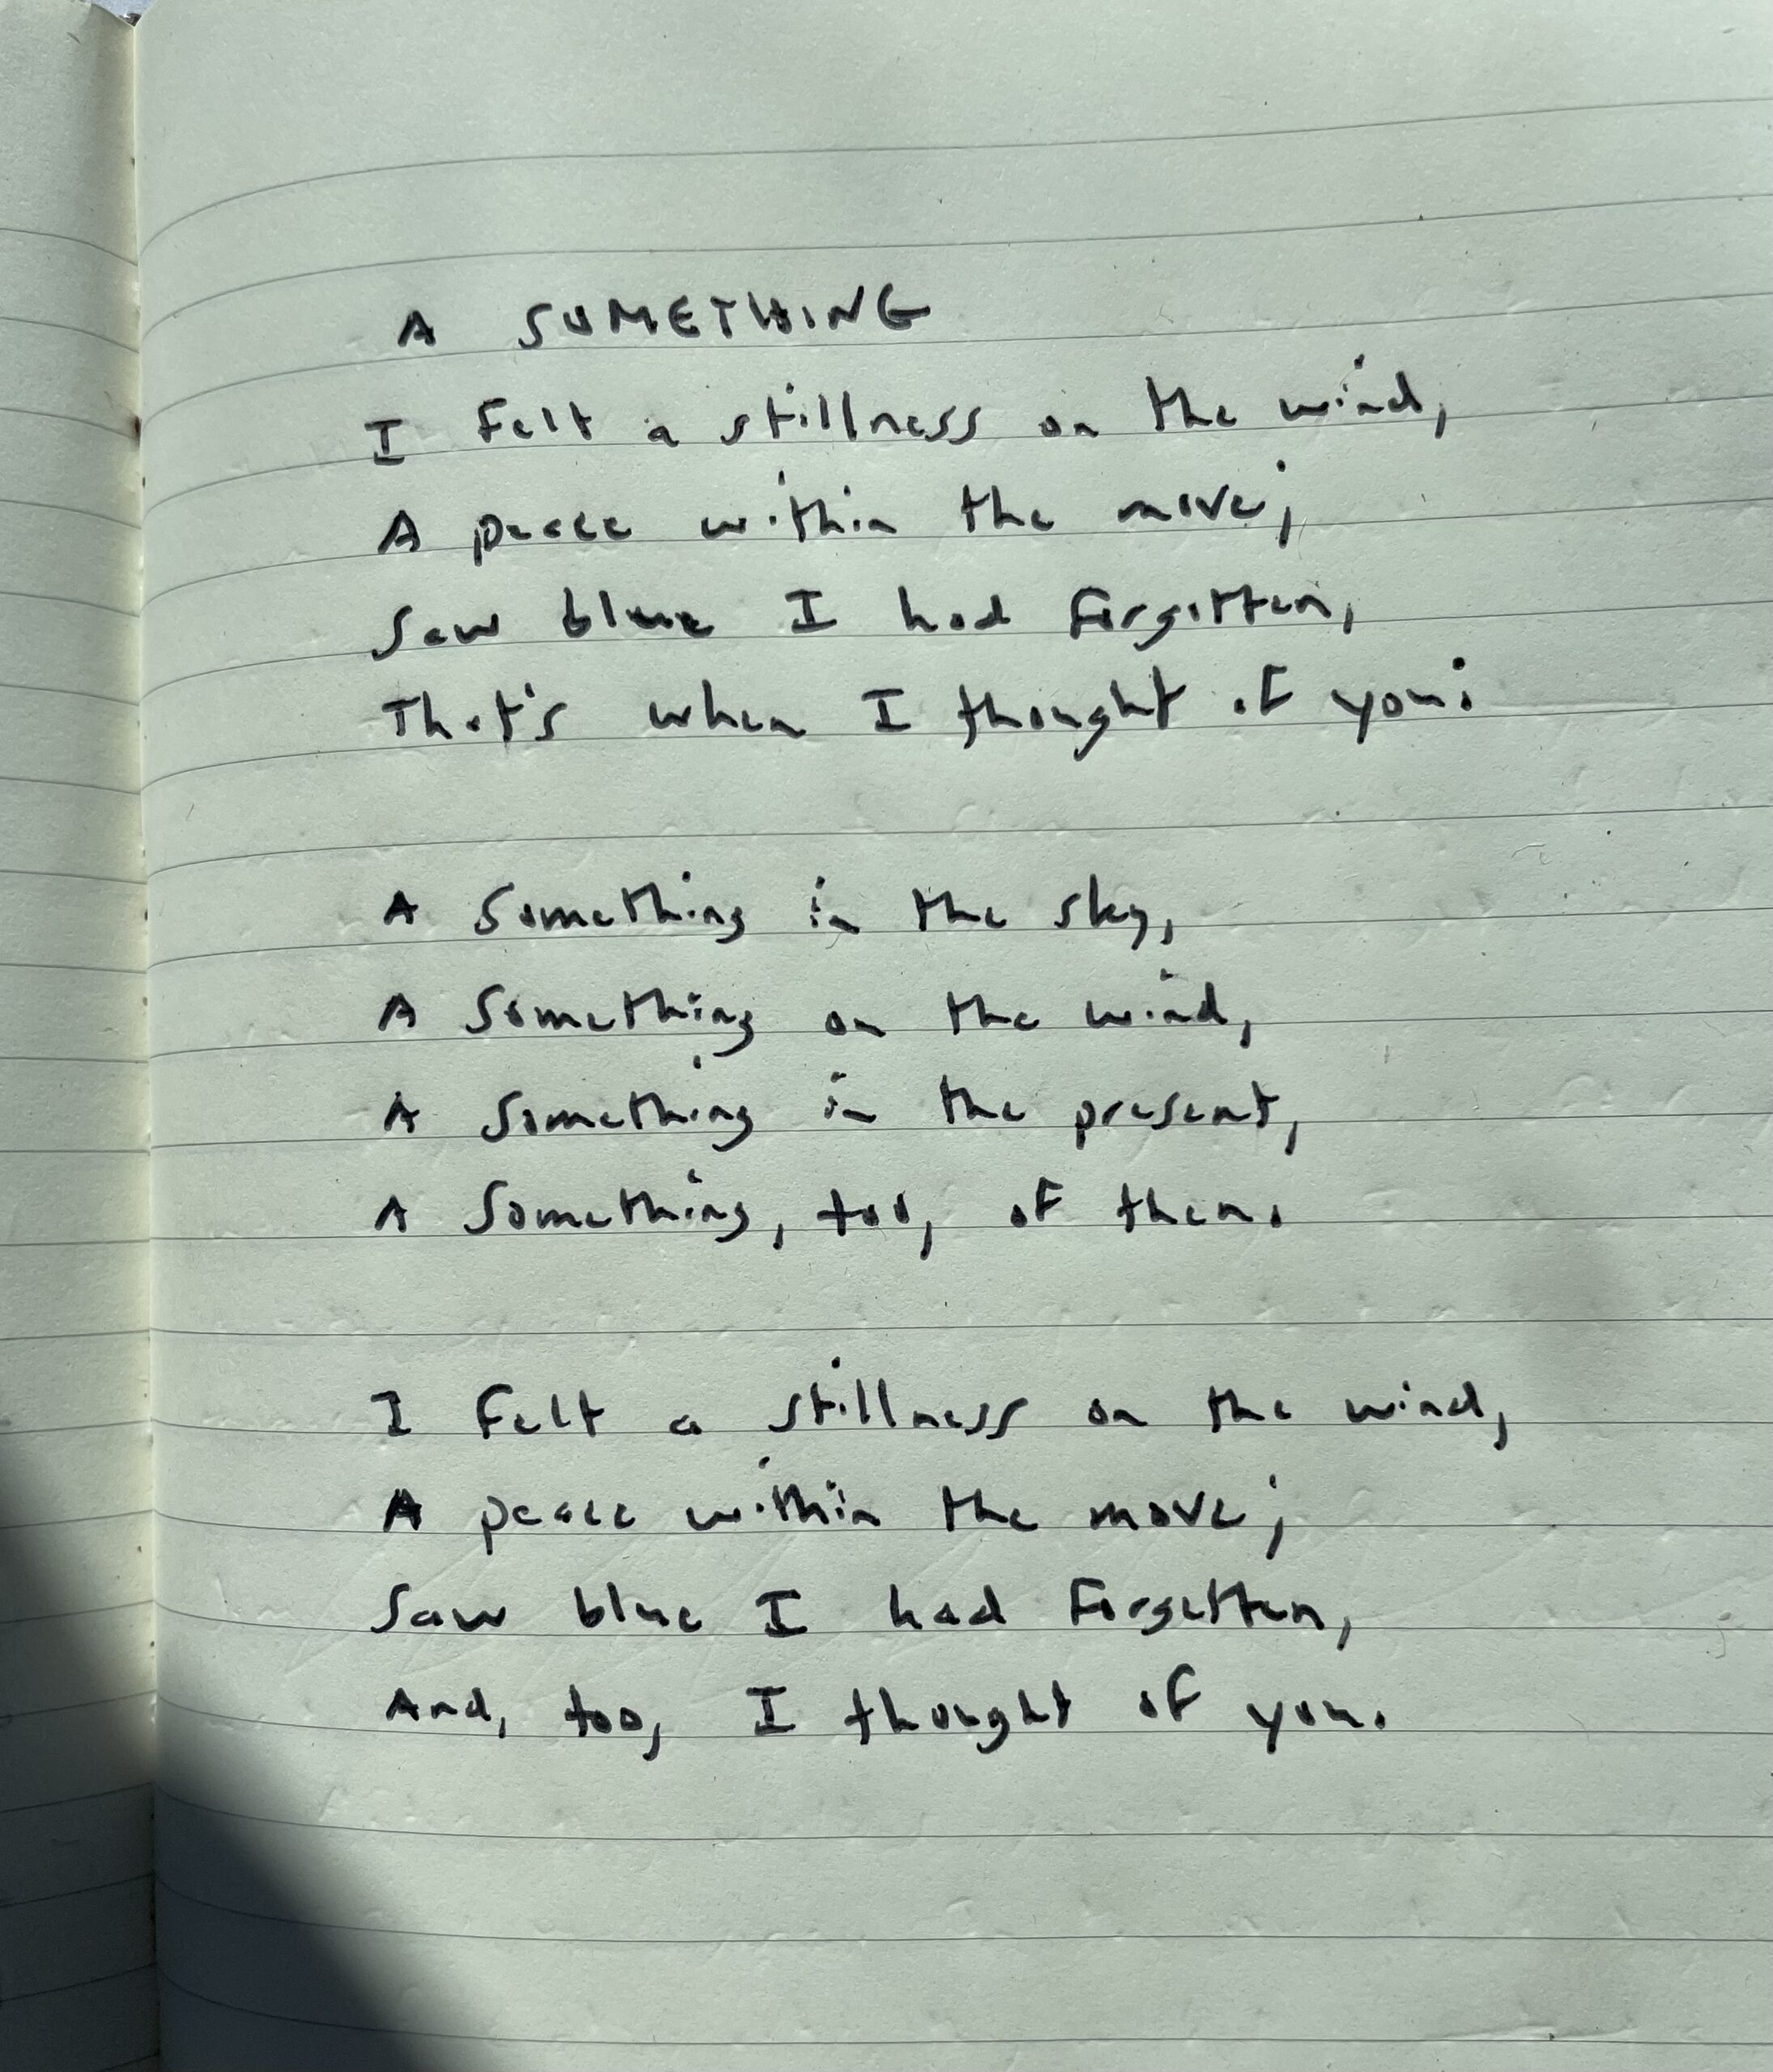 A SOMETHING
I felt a stillness on the wind,
A peace within the move;
Saw blue I had forgotten,
That's when I thought of you:
A Something in the sky,
A Something on the wind,
A Something in the present,
A Something, too, of then.
I felt a stillness on the wind,
A peace within the move;
Saw blue I had forgotten,
And, too, I thought of you.